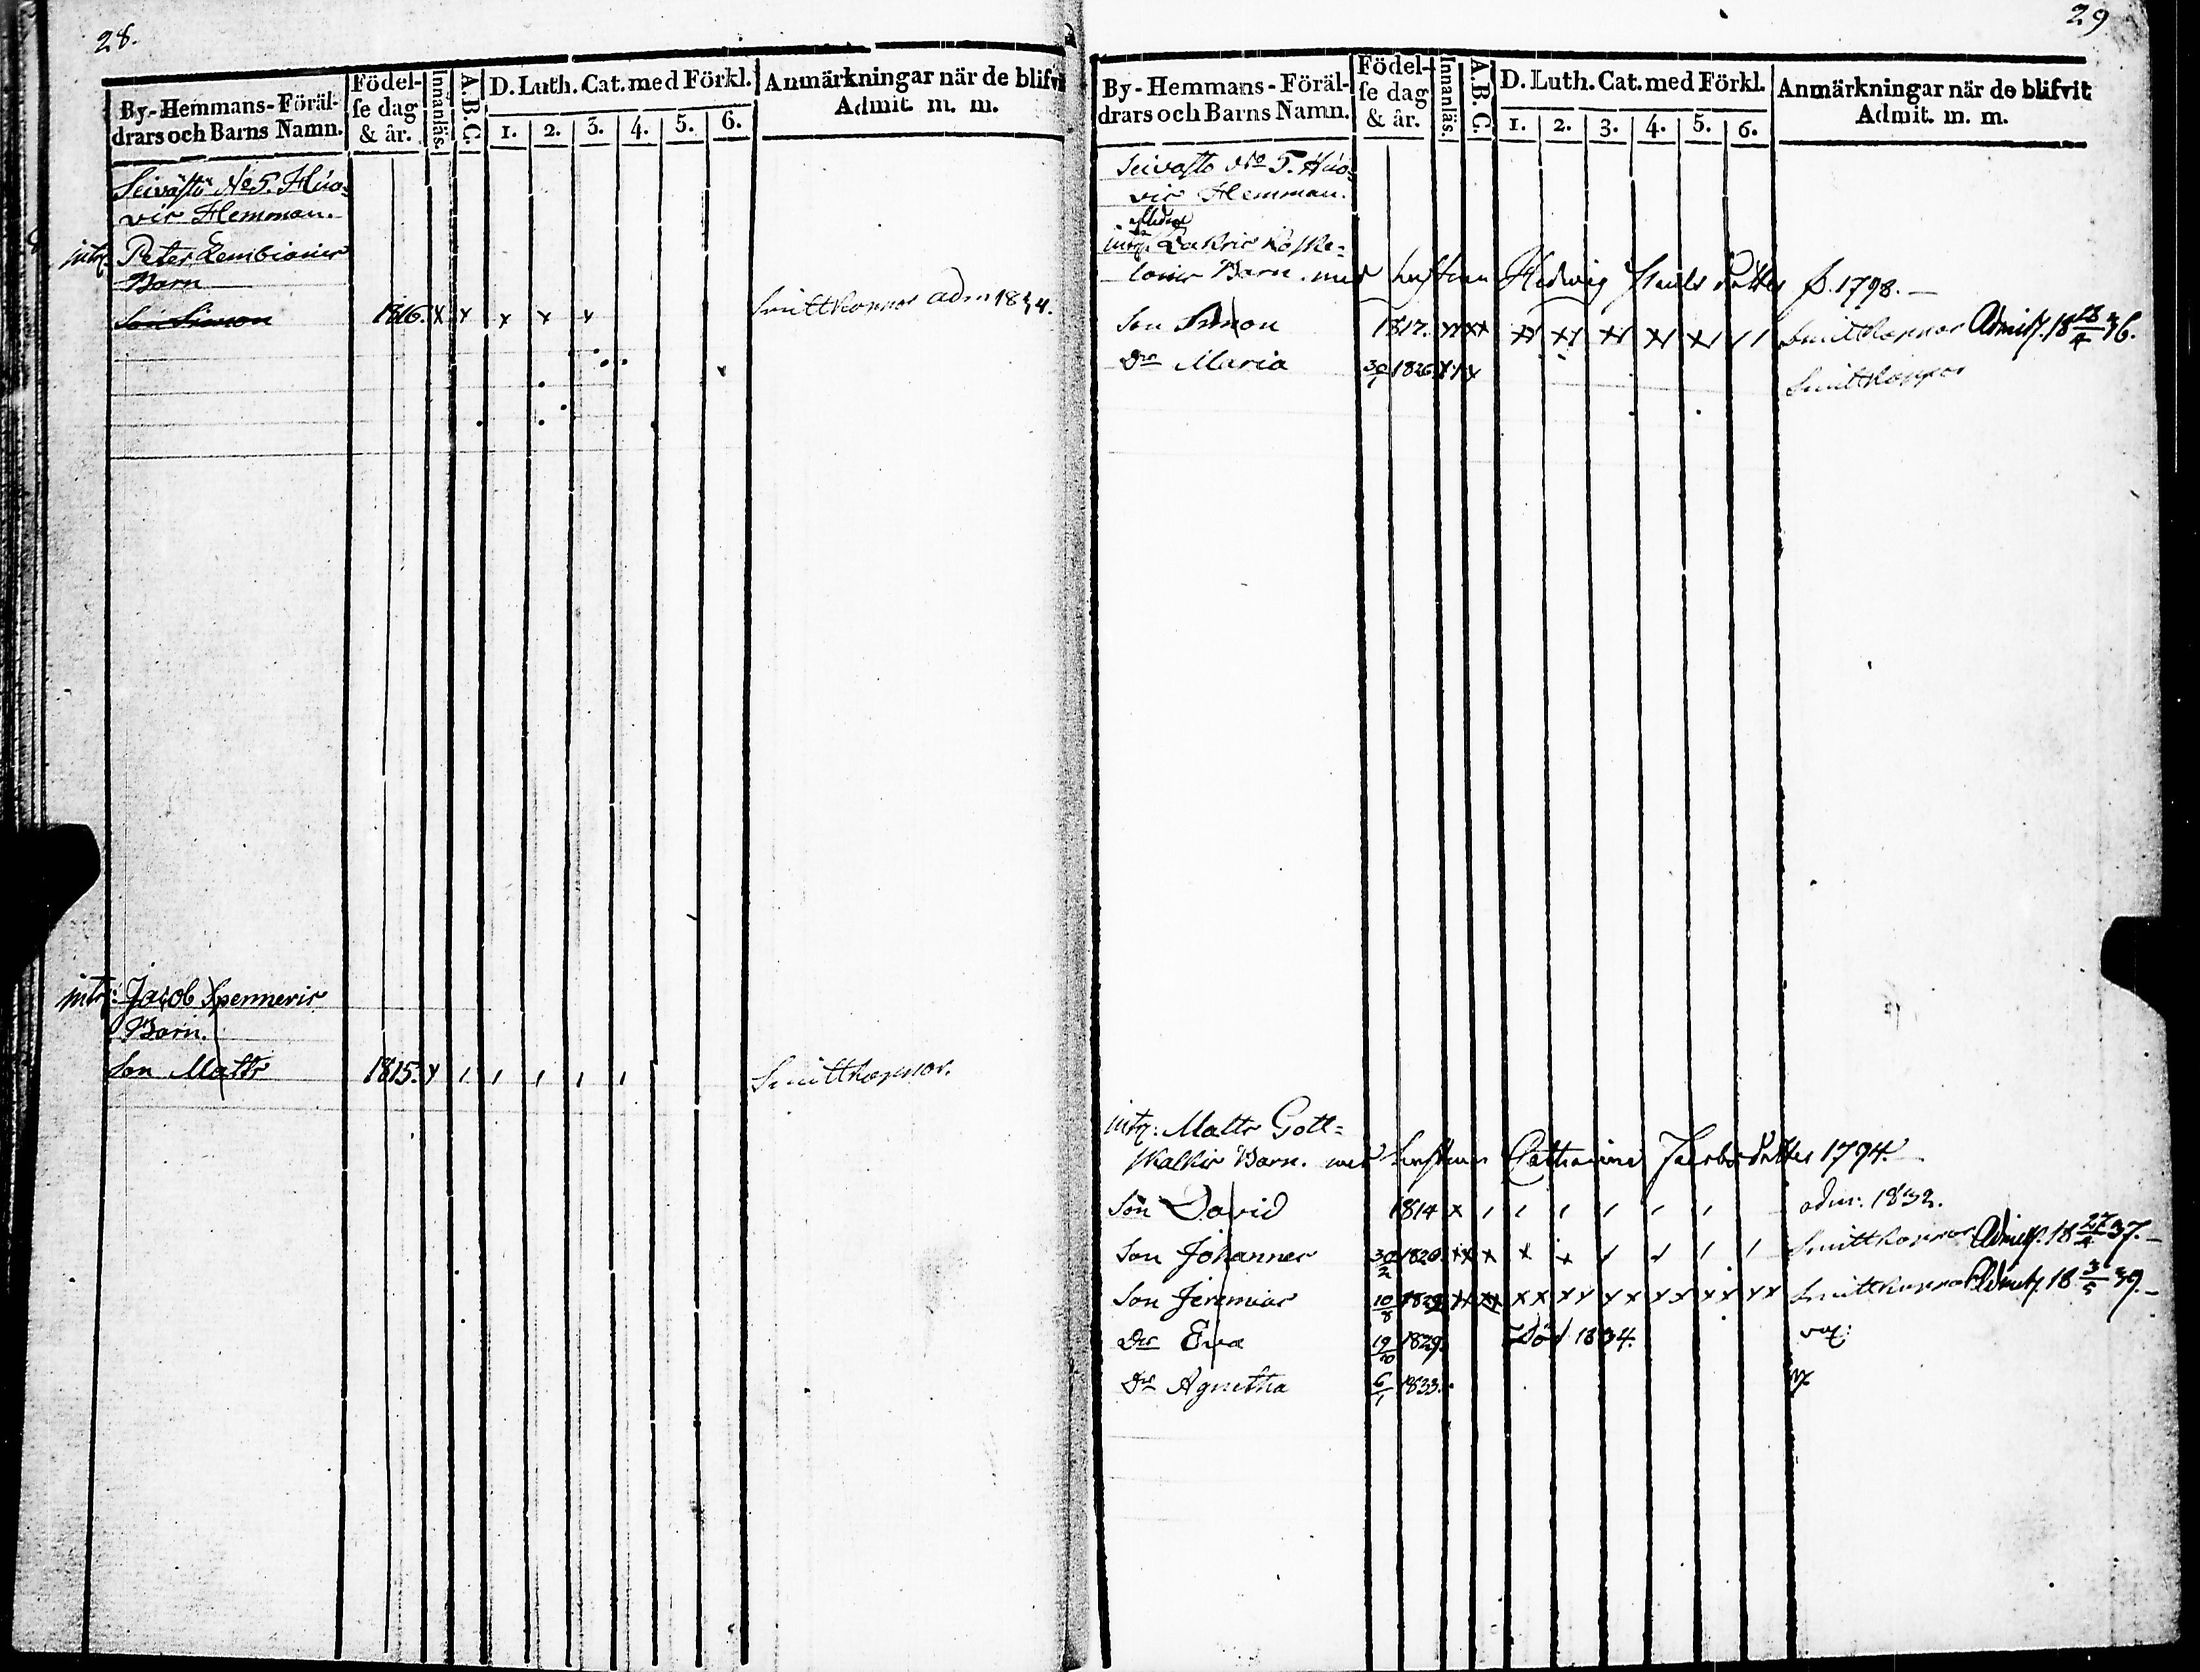 28.
By-Hemmans-Föräl-
drars och Barns Namn.
Födel-
se dag
& år.
Innanläs.
A.B.C.
D. Luth. Cat. med Förkl.
1. 2. 3. 4. 5. 6.
Anmärkningar när de blifvit
Admit. m. m.
Seivästö No 5. Huo-
vis Hemman.
inty. Peter Lembiäinis
Barn
Son Simon 1816. x x x x x Smittkoppor adm 1834.
inty: Jacob Spenneris
Barn.
Son Matts 1815. x / / / / / Smittkoppor.
29
By-Hemmans-Föräl-
drars och Barns Namn.
Födel-
se dag
& år.
Innanläs.
A.B.C.
D. Luth. Cat. med Förkl.
1. 2. 3. 4. 5. 6.
Anmärkningar när de blifvit
Admit. m. m.
Seivästö No 5. Huo-
vis Hemman.
inty.
Barn. med hustrun Hedwig Pauls dotter f. 1798.
Son Simon 1817. Smittkoppor Admitt. 18 28/4 36.
Dr Maria 30/1 1826. Smittkoppor
inty: Matts Gott-
skalkis Barn. med hustrun Catharina Jacobs dotter 1794.
Son David 1814 x / / / / / / adm: 1832.
Son Johannes 30/2 1820. Smittkoppor Admitt. 18 27/4 37.
Son Jeremias 10/8 Smittkoppor Admitt. 18 3/5 39.
Dr Eva 19/10 1829. Död 1834. vac:
Dr Agnetha 6/1 1833.